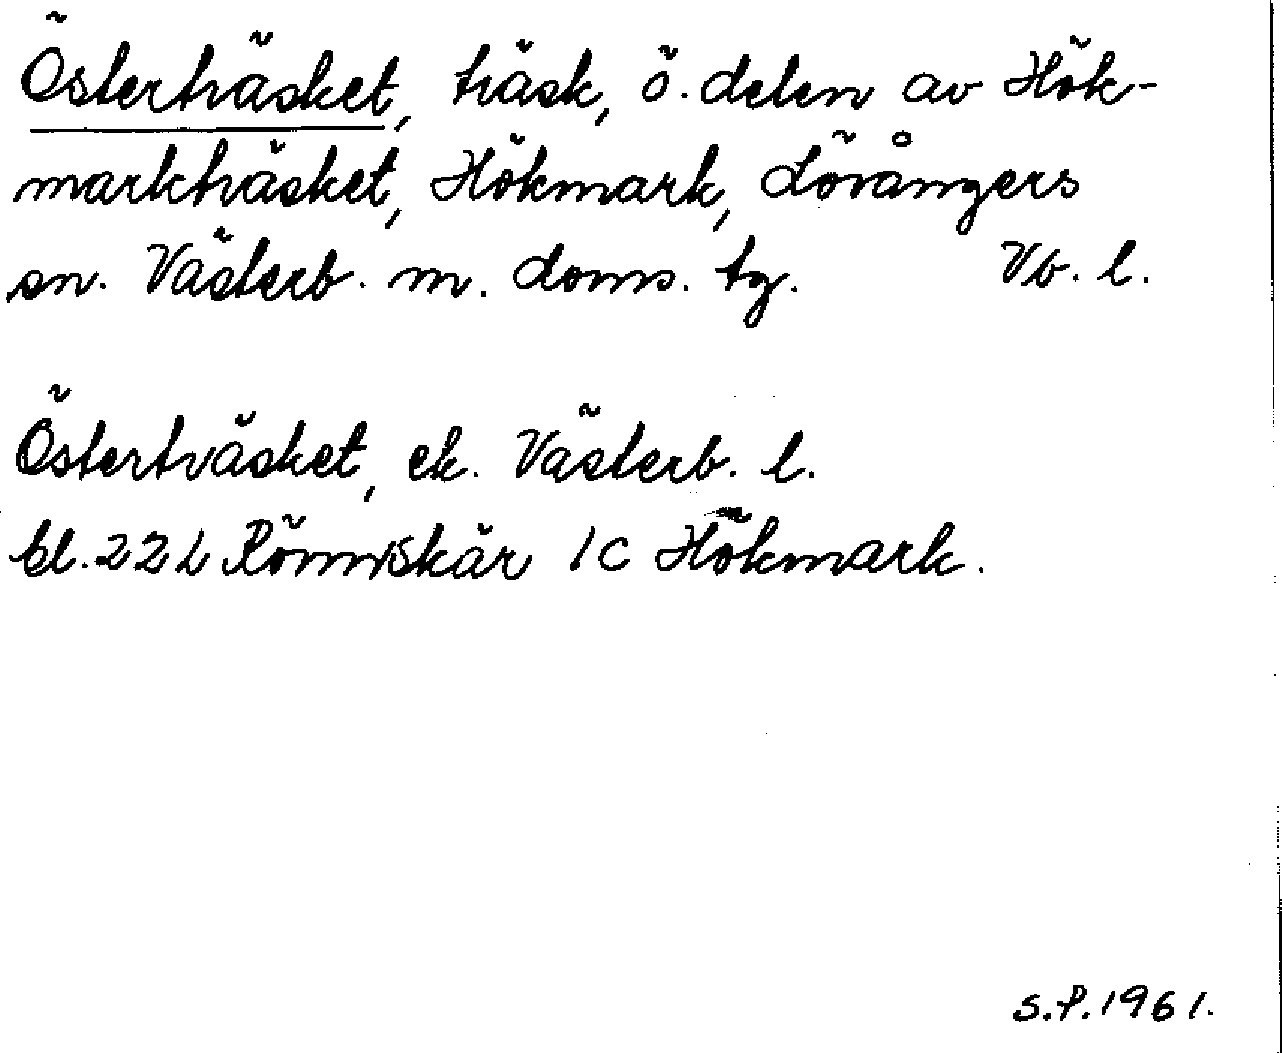 Österträsket, träsk, ö. delen av Hök-
markträsket, Hökmark, Lövångers
sn. Västerb. m. doms. tg. Vb. l.
Österträsket, ek. Västerb. l.
bl. 22 L Rönnskär 1 c Hökmark.
S.P. 1961.